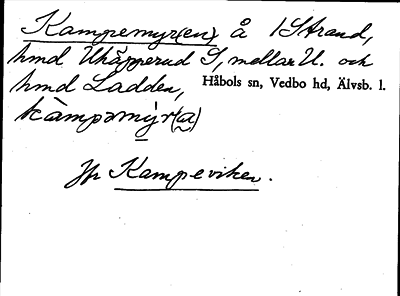 Kampemyr(en) å 1 Strand,
hmd Uhäpperud S, mellan U. och
hmd Ladden, Håbols sn, Vedbo hd, Älvsb. l.
kàmpəmy̆r(a)
Jfr Kampeviken.